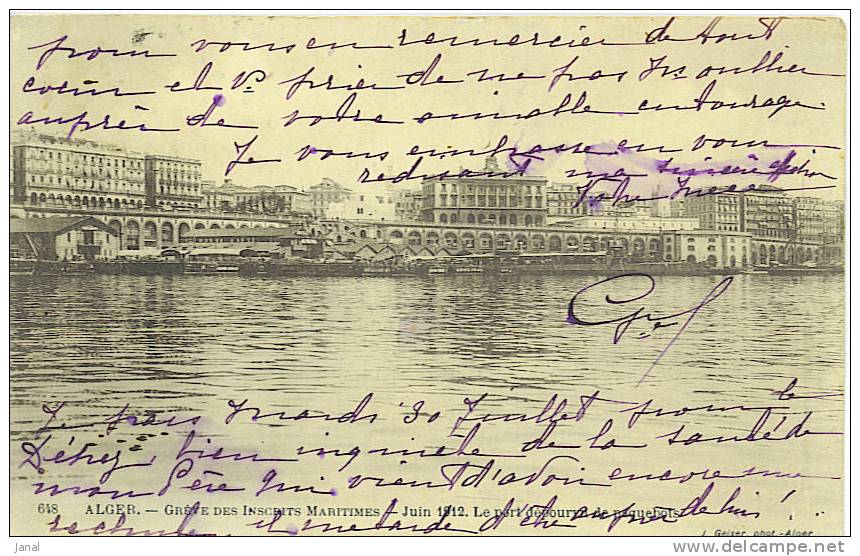 pour vous en remercier de tout
coeur et vs prier de ne pas m'oublier
auprès de votre aimable entourage.
Je vous embrasse en vous
redisant ma sincère affection
Votre nièce
Je pars mardi 30 Juillet pour le
bien inquiète de la santé de
mon Père qui vient d'avoir encore une
648 ALGER. — GRÊVE DES INSCRITS MARITIMES - Juin 1912. Le port dépourvu de paquebots
rechute, il me tarde d'être auprès de lui!
J. Geiser, phot.-Alger
Janal
http://www.delcampe.net